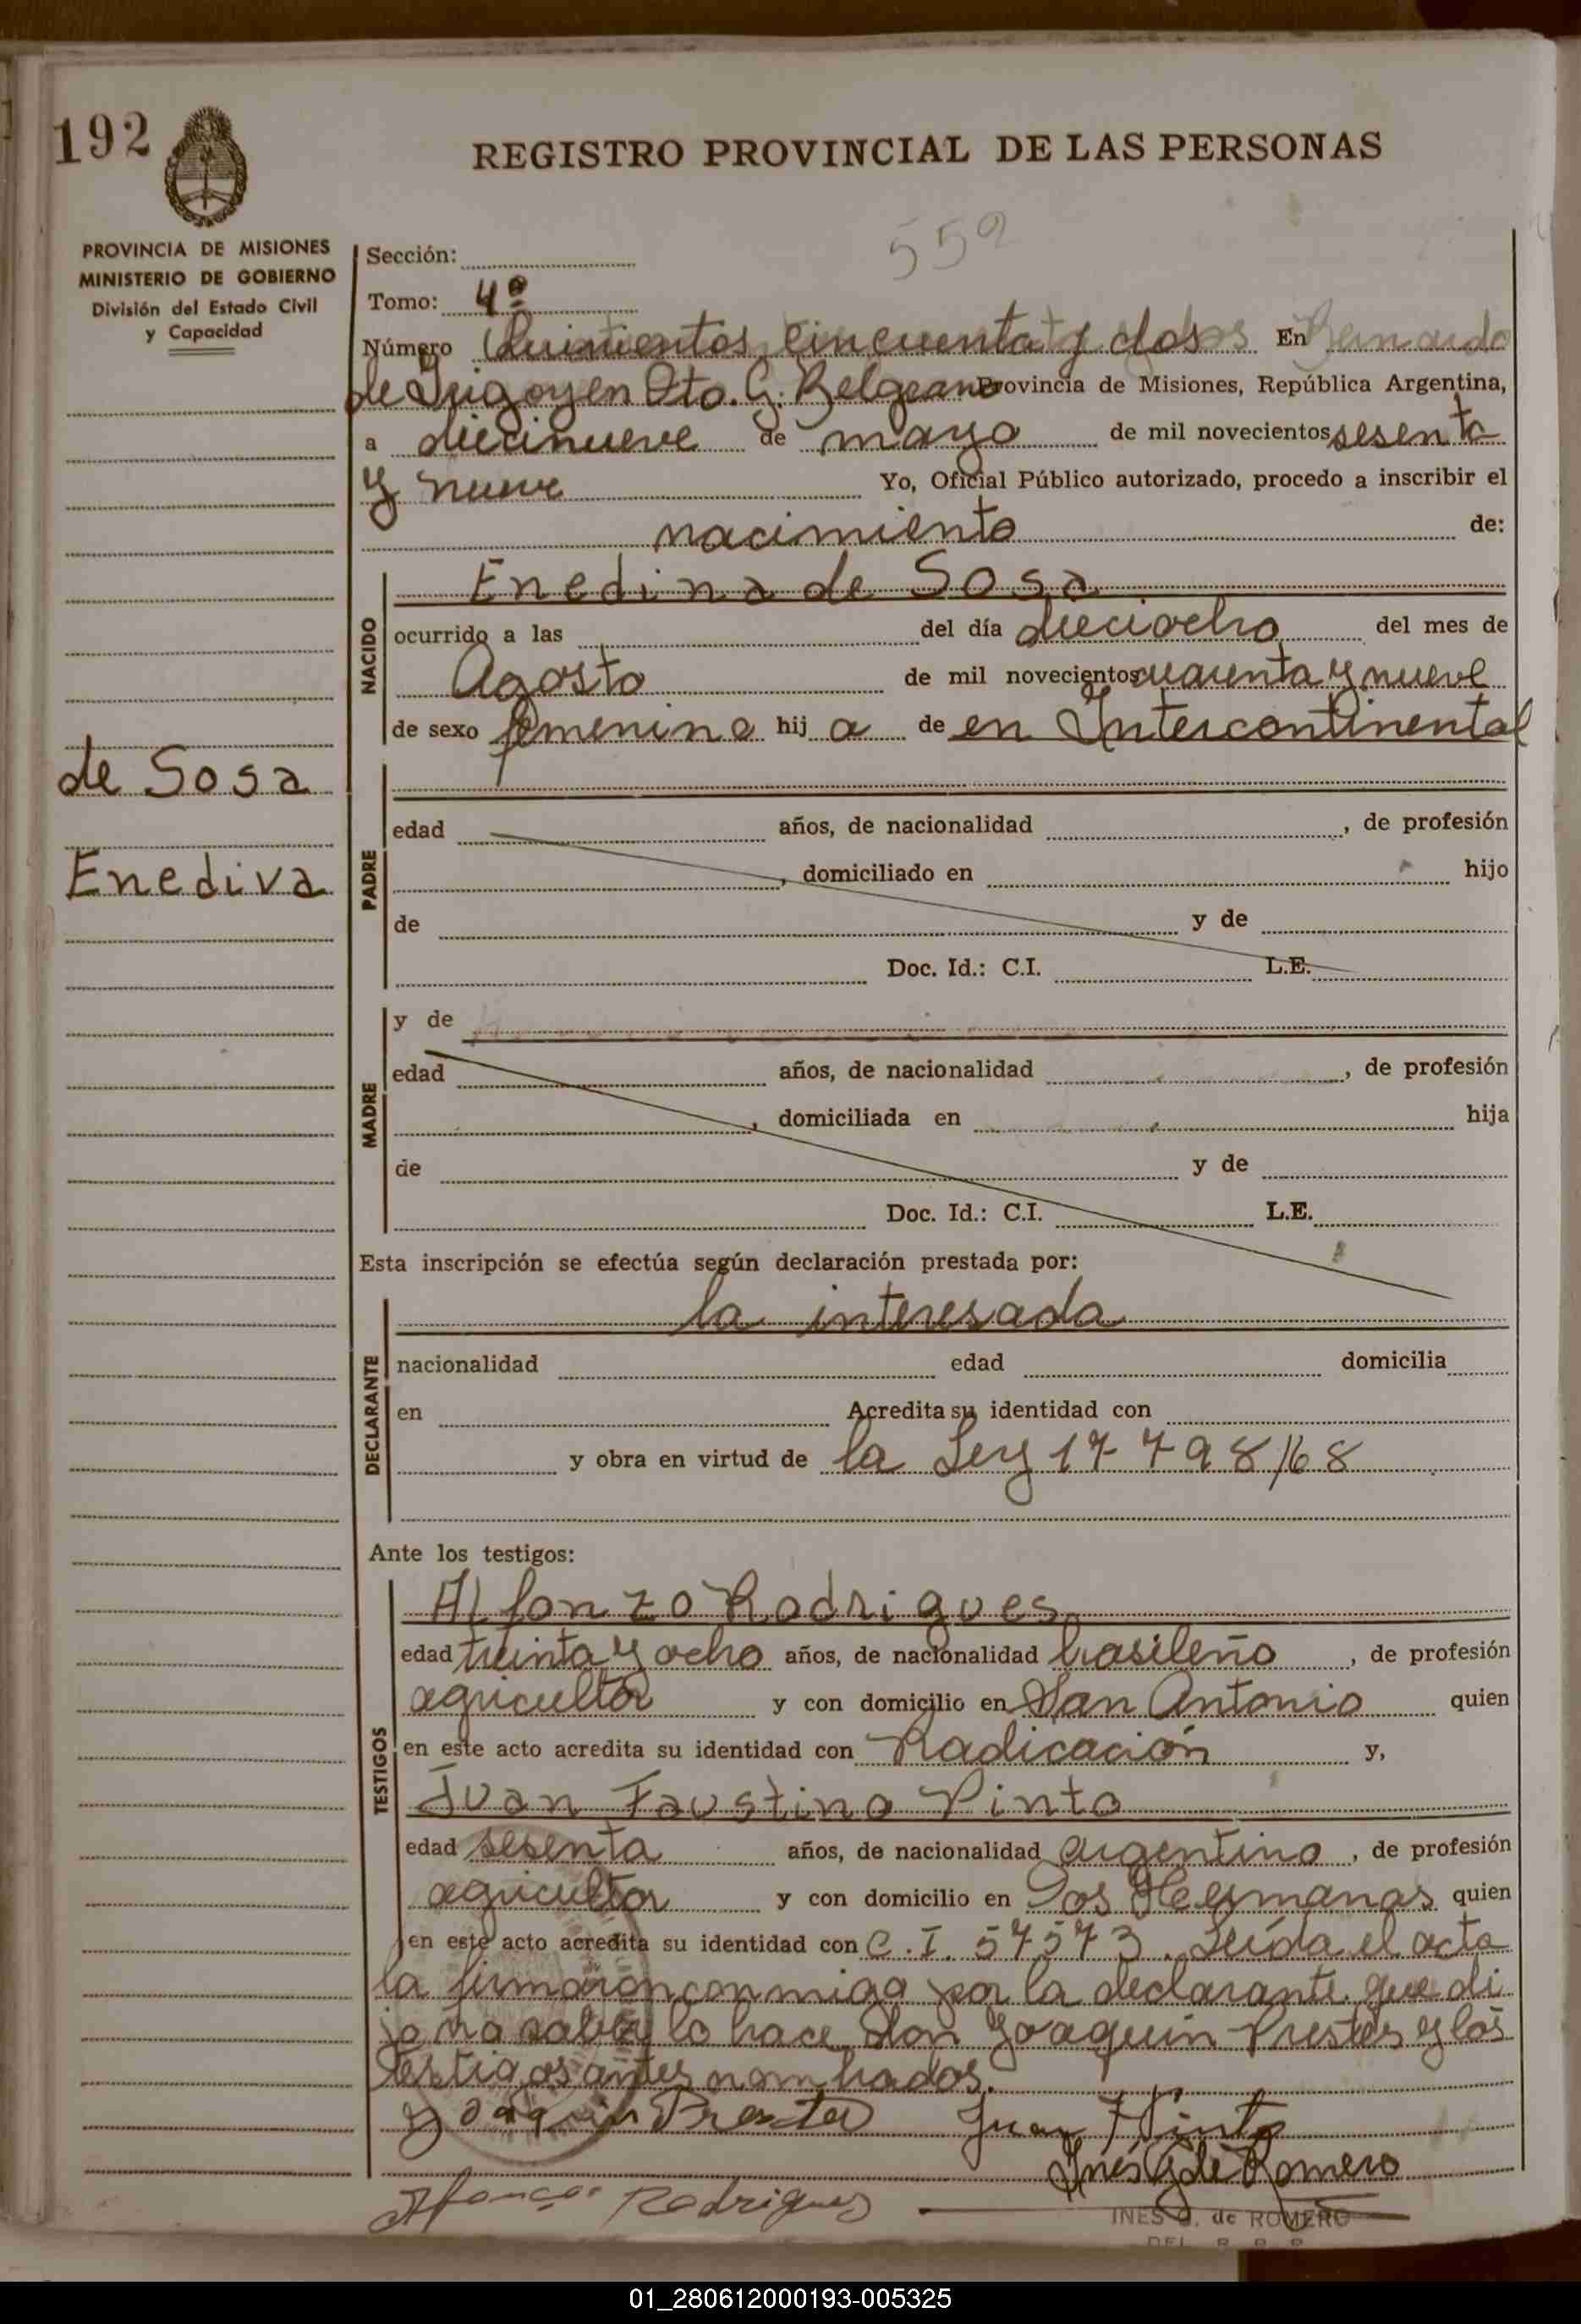 192
REGISTRO PROVINCIAL DE LAS PERSONAS
559
PROVINCIA DE MISIONES
MINISTERIO DE GOBIERNO
División del Estado Civil
y Capacidad
Sección:
Tomo: 4º
Número Quinientos cincuenta y dos En Bernardo
de Irigoyen Dto. G. Belgrano Provincia de Misiones, República Argentina,
a diecinueve de mayo de mil novecientos sesenta
y nueve Yo, Oficial Público autorizado, procedo a inscribir el
nacimiento de:
NACIDO
Enedina de Sosa
ocurrido a las del día dieciocho del mes de
Agosto de mil novecientos cuarenta y nueve
de sexo femenino hij a de en Intercontinental
de Sosa
Enediva
PADRE
edad años, de nacionalidad , de profesión
, domiciliado en hijo
de y de
Doc. Id.: C.I. L.E.
MADRE
y de
edad años, de nacionalidad , de profesión
, domiciliada en hija
de y de
Doc. Id.: C.I. L.E.
Esta inscripción se efectúa según declaración prestada por:
DECLARANTE
la interesada
nacionalidad edad domicilia
en Acredita su identidad con
y obra en virtud de la Ley 17798/68
Ante los testigos:
TESTIGOS
Alfonzo Rodrigues
edad treinta y ocho años, de nacionalidad brasileño , de profesión
agricultor y con domicilio en San Antonio quien
en este acto acredita su identidad con Radicación y,
Juan Faustino Pinto
edad sesenta años, de nacionalidad argentino , de profesión
agricultor y con domicilio en Dos Hermanas quien
en este acto acredita su identidad con C.I. 57573. Leída el acta
la firmaron conmigo por la declarante que di
jo no saber lo hace don Joaquin Prestes y los
testigos antes nombrados.
Joaquin Prestes Juan F Pinto
Inés G de Romero
Rodrigues
INES G. de ROMERO
DEL. R. P. P.
01_280612000193-005325